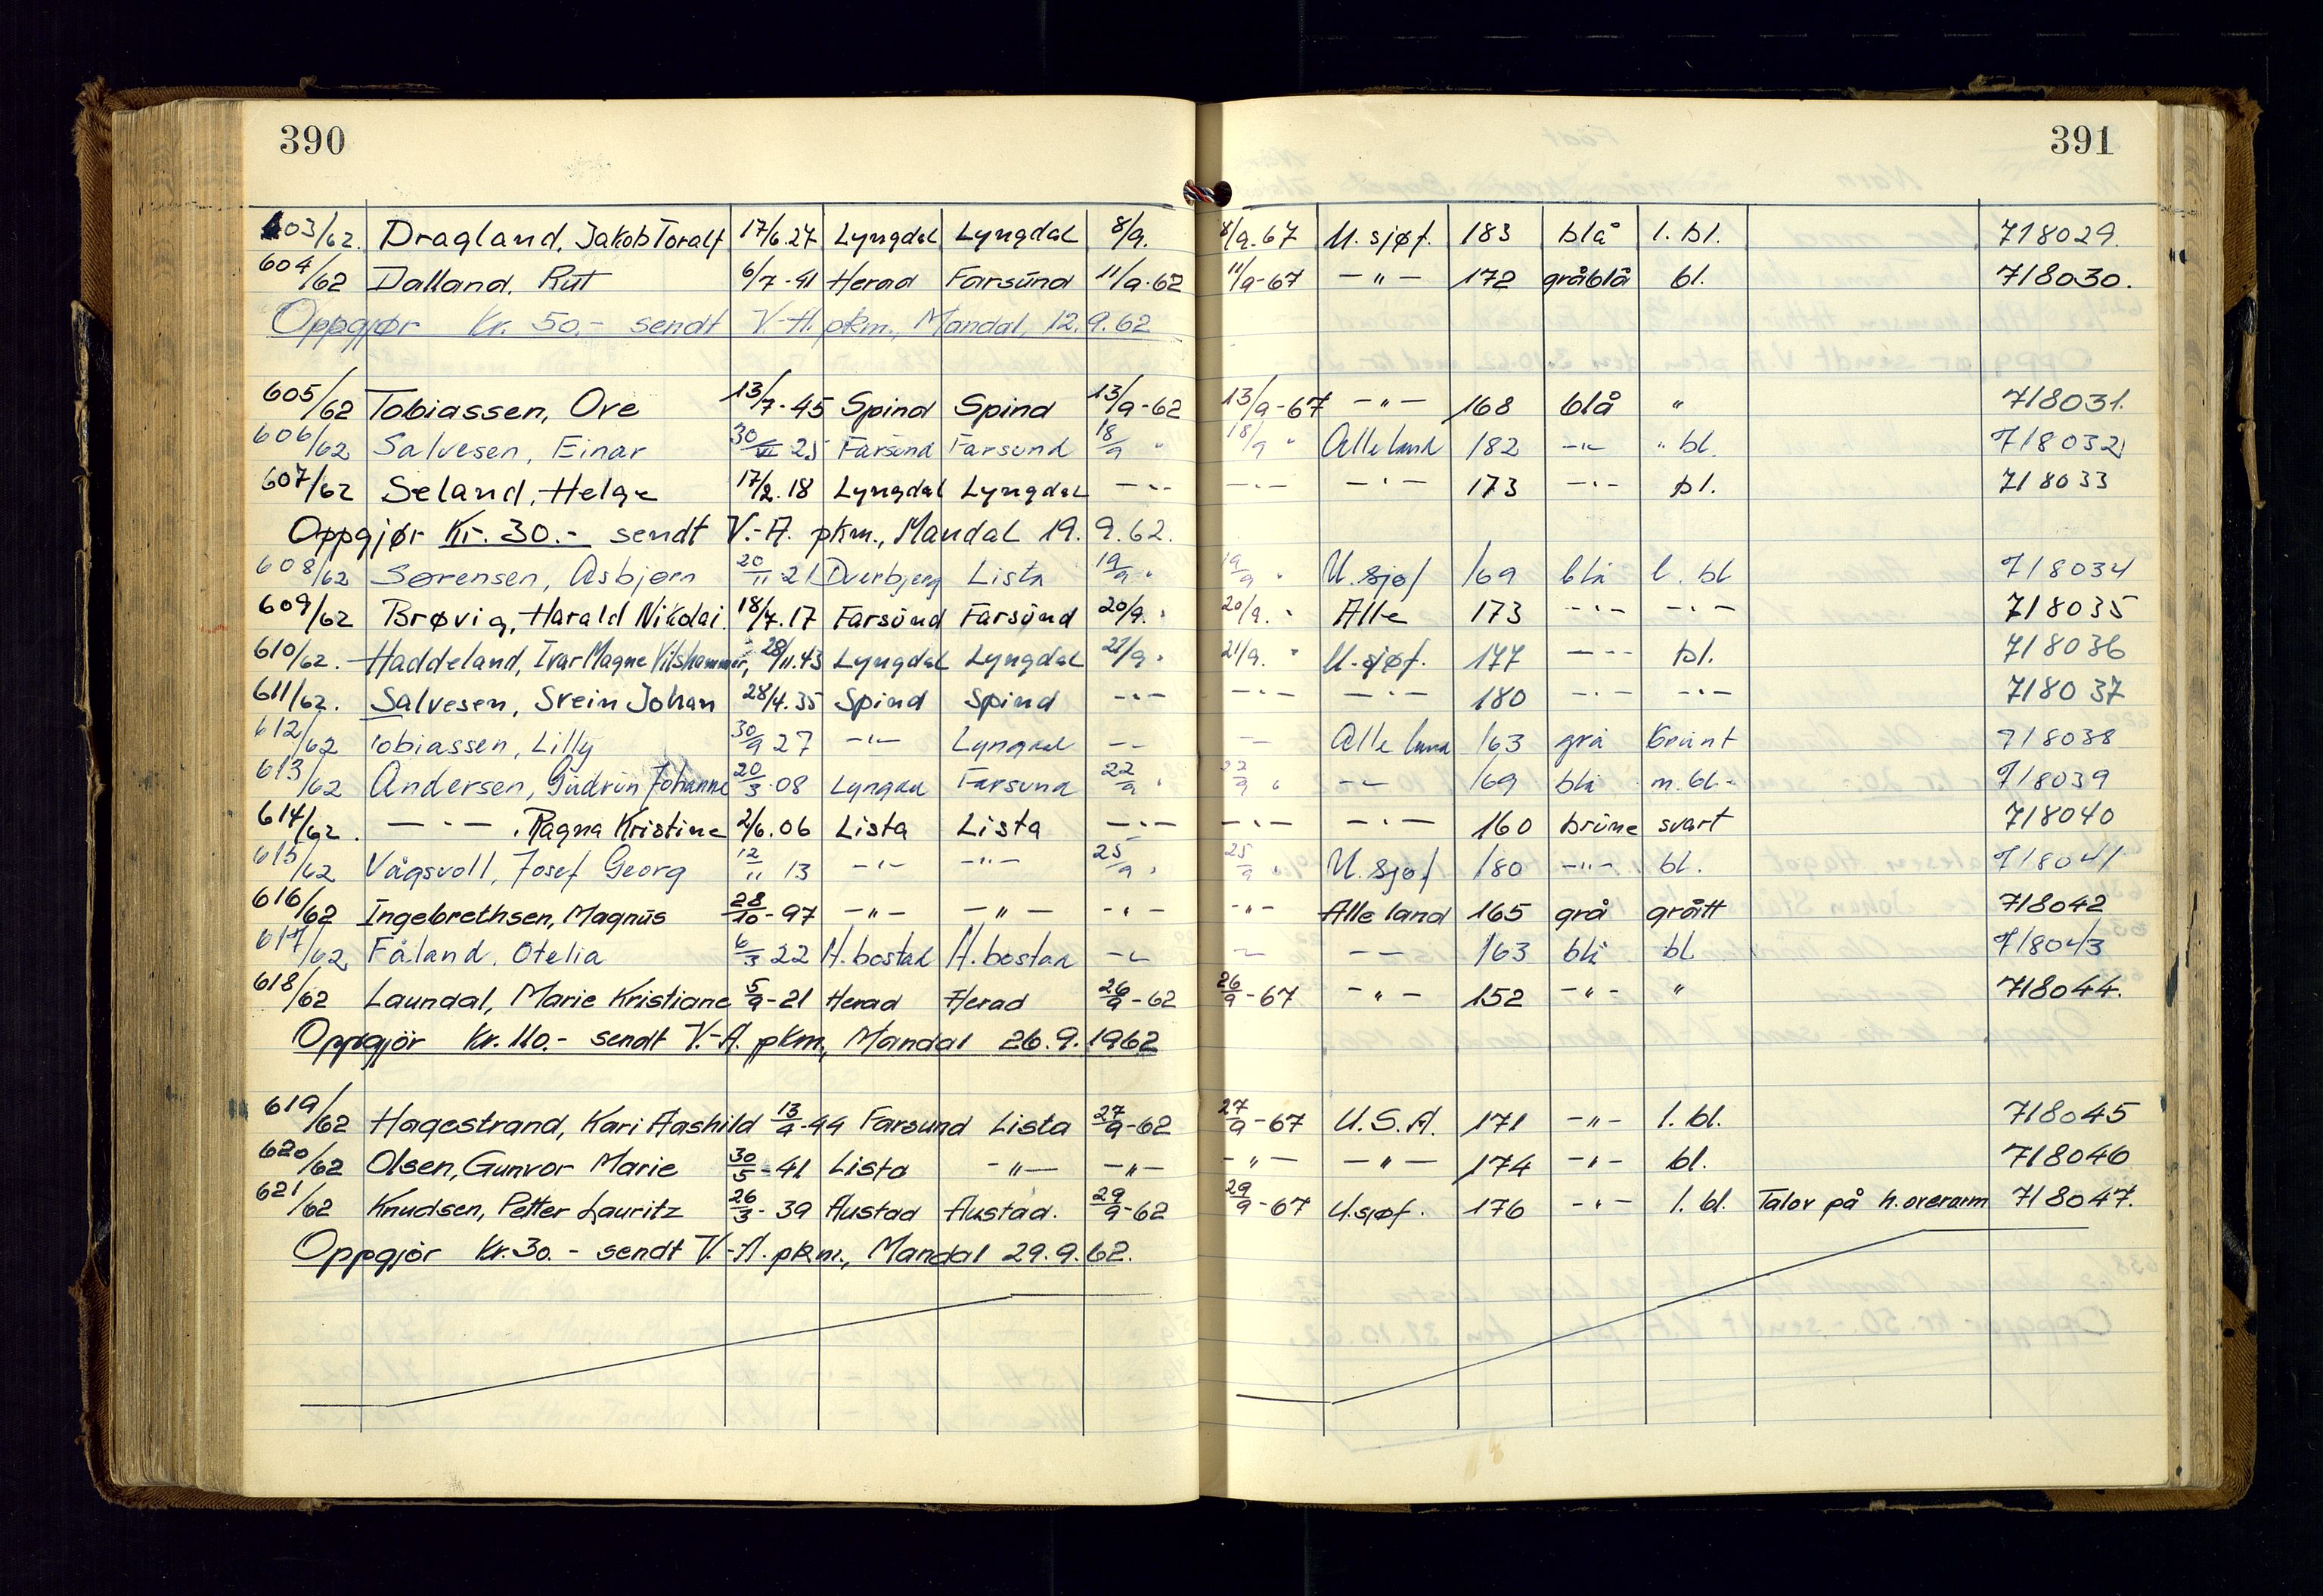 390
391
603/62. Dragland, Jakob Toralf 17/6.27 Lyngdal Lyngdal 8/9. 8/9.67 U. sjøf. 183 blå l. bl. 718029.
604/62 Dalland, Rut 6/7-41 Herad Farsund 11/9-62 11/9-67 -"- 172 gråblå bl. 718030.
Oppgjør Kr. 50.- sendt V-A. pkm., Mandal, 12.9.62
605/62 Tobiassen, Ove 13/7-45 Spind Spind 13/9-62 13/9-67 -"- 168 blå " 718031.
606/62 Salvesen, Einar 30/VI 25 Farsund Farsund 18/9 " 18/9 " Alle land 182 -"- " bl. 718032
607/62 Seland, Helge 17/2.18 Lyngdal Lyngdal -"- -"- -"- 173 -"- bl. 718033
Oppgjør Kr. 30.- sendt V.-A. pkm., Mandal 19.9.62.
608/62 Sørensen, Asbjørn 20/11 21 Dverbjerg Lista 19/9 " 19/9 " U. sjøf 169 blå l. bl 718034
609/62 Brøvig, Harald Nikolai. 18/7.17 Farsund Farsund 20/9. " 20/9. " Alle 173 -"- -"- 718035
610/62. Haddeland, Ivar Magne Vilshammer, 28/11.43 Lyngdal Lyngdal 21/9 " 21/9. " U. sjøf. 177 -"- bl. 718036
611/62. Salvesen, Svein Johan 28/4.35 Spind Spind -"- -"- -"- 180 -"- -"- 718037
612/62 Tobiassen, Lilly 30/9 27 -"- Lyngdal -"- -"- Alle land 163 grå brunt 718038
613/62 Andersen, Gudrun Johanne 20/3.08 Lyngdal Farsund 22/9 " 22/9 " -"- 169 blå m. bl- 718039
614/62. -"-, Ragna Kristine 2/6.06 Lista Lista -"- -"- -"- 160 brune svart 718040
615/62 Vågsvoll, Josef Georg 12/11 13 -"- -"- 25/9 " 25/9 " U. sjøf 180 -"- bl. 718041
616/62 Ingebrethsen, Magnus 28/10-97 -"- -"- -"- -"- Alle land 165 grå grått 718042
617/62 Fåland, Otelia 6/3 22 H.bostad H.bostad -"- -"- -"- 163 blå bl. 718043
618/62 Laundal, Marie Kristiane 5/9-21 Herad Herad 26/9-62 26/9-67 -"- 152 -"- " 718044.
Oppgjør Kr. 110.- sendt V.-A. pkm., Mandal 26.9.1962
619/62 Hagestrand, Kari Aashild 13/9-44 Farsund Lista 27/9-62 27/9-67 U.S.A. 171 -"- l. bl. 718045
620/62 Olsen, Gunvor Marie 30/5-41 Lista -"- -"- -"- -"- 174 -"- bl. 718046
621/62 Knudsen, Petter Lauritz 26/3-39 Austad Austad. 29/9-62 29/9-67 U.sjøf. 176 -"- l. bl. Talov på h. overarm 718047.
Oppgjør Kr. 30.- sendt V.-A. pkm., Mandal 29.9.62.